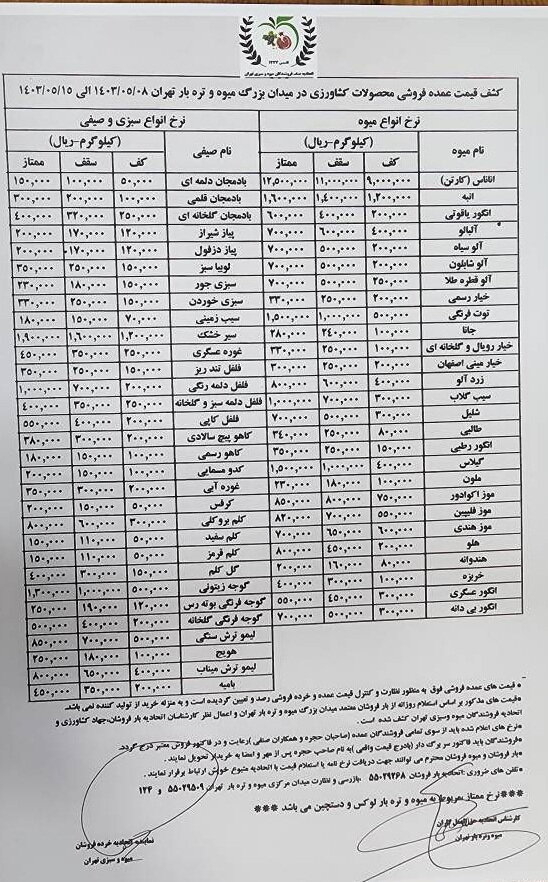 تاسیس ۱۳۲۲
اتحادیه صنف فروشندگان میوه و سبزی تهران
کشف قیمت عمده فروشی محصولات کشاورزی در میدان بزرگ میوه و تره بار تهران ۱۴۰۳/۰۵/۰۸ الی ۱۴۰۳/۰۵/۱۵
نرخ انواع میوه نرخ انواع سبزی و صیفی
نام میوه (کیلوگرم-ریال) نام صیفی (کیلوگرم-ریال)
کف سقف ممتاز کف سقف ممتاز
آناناس (کارتن) ۹,۰۰۰,۰۰۰ ۱۱,۰۰۰,۰۰۰ ۱۲,۵۰۰,۰۰۰ بادمجان دلمه ای ۵۰,۰۰۰ ۱۰۰,۰۰۰ ۱۵۰,۰۰۰
انبه ۱,۲۰۰,۰۰۰ ۱,۴۰۰,۰۰۰ ۱,۶۰۰,۰۰۰ بادمجان قلمی ۱۰۰,۰۰۰ ۲۰۰,۰۰۰ ۳۰۰,۰۰۰
انگور یاقوتی ۲۰۰,۰۰۰ ۴۰۰,۰۰۰ ۶۰۰,۰۰۰ بادمجان گلخانه ای ۲۵۰,۰۰۰ ۳۲۰,۰۰۰ ۴۰۰,۰۰۰
آلبالو ۴۰۰,۰۰۰ ۶۰۰,۰۰۰ ۷۰۰,۰۰۰ پیاز شیراز ۱۲۰,۰۰۰ ۱۷۰,۰۰۰ ۲۰۰,۰۰۰
آلو سیاه ۲۰۰,۰۰۰ ۵۰۰,۰۰۰ ۷۰۰,۰۰۰ پیاز دزفول ۱۲۰,۰۰۰ ۱۷۰,۰۰۰ ۲۰۰,۰۰۰
آلو شابلون ۲۰۰,۰۰۰ ۵۰۰,۰۰۰ ۷۰۰,۰۰۰ لوبیا سبز ۱۵۰,۰۰۰ ۲۵۰,۰۰۰ ۳۵۰,۰۰۰
آلو قطره طلا ۲۵۰,۰۰۰ ۵۰۰,۰۰۰ ۷۰۰,۰۰۰ سبزی جور ۱۵۰,۰۰۰ ۱۸۰,۰۰۰ ۲۳۰,۰۰۰
خیار رسمی ۲۰۰,۰۰۰ ۲۵۰,۰۰۰ ۳۳۰,۰۰۰ سبزی خوردن ۱۵۰,۰۰۰ ۲۵۰,۰۰۰ ۳۳۰,۰۰۰
توت فرنگی ۵۰۰,۰۰۰ ۱,۰۰۰,۰۰۰ ۱,۵۰۰,۰۰۰ سیب زمینی ۷۰,۰۰۰ ۱۵۰,۰۰۰ ۱۸۰,۰۰۰
جانا ۱۰۰,۰۰۰ ۲۴۰,۰۰۰ ۲۸۰,۰۰۰ سیر خشک ۱,۲۰۰,۰۰۰ ۱,۶۰۰,۰۰۰ ۱,۹۰۰,۰۰۰
خیار رویال و گلخانه ای ۱۰۰,۰۰۰ ۲۵۰,۰۰۰ ۳۳۰,۰۰۰ غوره عسگری ۲۵۰,۰۰۰ ۳۵۰,۰۰۰ ۴۵۰,۰۰۰
خیار مینی اصفهان ۲۰۰,۰۰۰ ۲۵۰,۰۰۰ ۳۰۰,۰۰۰ فلفل تند ریز ۱۵۰,۰۰۰ ۲۵۰,۰۰۰ ۳۵۰,۰۰۰
زرد آلو ۴۰۰,۰۰۰ ۶۰۰,۰۰۰ ۸۰۰,۰۰۰ فلفل دلمه رنگی ۲۰۰,۰۰۰ ۷۰۰,۰۰۰ ۱,۰۰۰,۰۰۰
سیب گلاب ۳۰۰,۰۰۰ ۷۰۰,۰۰۰ ۱,۰۰۰,۰۰۰ فلفل دلمه سبز و گلخانه ۲۵۰,۰۰۰ ۳۵۰,۰۰۰ ۴۰۰,۰۰۰
شلیل ۳۰۰,۰۰۰ ۵۰۰,۰۰۰ ۷۰۰,۰۰۰ فلفل کاپی ۲۰۰,۰۰۰ ۴۰۰,۰۰۰ ۵۵۰,۰۰۰
طالبی ۸۰,۰۰۰ ۲۵۰,۰۰۰ ۳۴۰,۰۰۰ کاهو پیچ سالادی ۲۰۰,۰۰۰ ۳۰۰,۰۰۰ ۳۸۰,۰۰۰
انگور رطبی ۱۵۰,۰۰۰ ۲۵۰,۰۰۰ ۳۵۰,۰۰۰ کاهو رسمی ۱۰۰,۰۰۰ ۱۵۰,۰۰۰ ۱۸۰,۰۰۰
گیلاس ۴۰۰,۰۰۰ ۱,۰۰۰,۰۰۰ ۱,۵۰۰,۰۰۰ کدو مسمایی ۱۰۰,۰۰۰ ۱۵۰,۰۰۰ ۲۰۰,۰۰۰
ملون ۱۰۰,۰۰۰ ۱۸۰,۰۰۰ ۲۳۰,۰۰۰ غوره آبی ۲۰۰,۰۰۰ ۳۰۰,۰۰۰ ۳۵۰,۰۰۰
موز اکوادور ۷۵۰,۰۰۰ ۸۰۰,۰۰۰ ۸۵۰,۰۰۰ کرفس ۵۰,۰۰۰ ۱۵۰,۰۰۰ ۲۰۰,۰۰۰
موز فلیپین ۵۵۰,۰۰۰ ۷۰۰,۰۰۰ ۸۲۰,۰۰۰ کلم بروکلی ۳۰۰,۰۰۰ ۶۰۰,۰۰۰ ۸۰۰,۰۰۰
موز هندی ۶۰۰,۰۰۰ ۶۵۰,۰۰۰ ۷۰۰,۰۰۰ کلم سفید ۵۰,۰۰۰ ۱۱۰,۰۰۰ ۱۵۰,۰۰۰
هلو ۲۰۰,۰۰۰ ۴۵۰,۰۰۰ ۸۰۰,۰۰۰ کلم قرمز ۵۰,۰۰۰ ۱۱۰,۰۰۰ ۱۵۰,۰۰۰
هندوانه ۸۰,۰۰۰ ۱۶۰,۰۰۰ ۲۰۰,۰۰۰ گل کلم ۱۵۰,۰۰۰ ۳۰۰,۰۰۰ ۴۰۰,۰۰۰
خربزه ۱۰۰,۰۰۰ ۳۰۰,۰۰۰ ۴۰۰,۰۰۰ گوجه زیتونی ۵۰۰,۰۰۰ ۱,۰۰۰,۰۰۰ ۱,۳۰۰,۰۰۰
انگور عسگری ۳۰۰,۰۰۰ ۴۵۰,۰۰۰ ۵۵۰,۰۰۰ گوجه فرنگی بوته رس ۱۲۰,۰۰۰ ۱۹۰,۰۰۰ ۲۵۰,۰۰۰
انگور بی دانه ۳۰۰,۰۰۰ ۵۰۰,۰۰۰ ۷۰۰,۰۰۰ گوجه فرنگی گلخانه ۲۰۰,۰۰۰ ۴۰۰,۰۰۰ ۵۰۰,۰۰۰
لیمو ترش سنگی ۵۰۰,۰۰۰ ۷۰۰,۰۰۰ ۸۵۰,۰۰۰
هویج ۱۰۰,۰۰۰ ۱۸۰,۰۰۰ ۲۵۰,۰۰۰
لیمو ترش میناب ۴۰۰,۰۰۰ ۶۵۰,۰۰۰ ۸۰۰,۰۰۰
بامیه ۲۰۰,۰۰۰ ۳۵۰,۰۰۰ ۴۵۰,۰۰۰
* قیمت های عمده فروشی فوق به منظور نظارت و کنترل قیمت عمده و خرده فروشی رصد و تعیین گردیده است و به منزله خرید از تولید کننده نمی باشد.
* قیمت های مذکور بر اساس استعلام روزانه از بار فروشان معتمد میدان بزرگ میوه و تره بار تهران و اعمال نظر کارشناسان اتحادیه بار فروشان،جهاد کشاورزی و
اتحادیه فروشندگان میوه وسبزی تهران کشف شده است.
* نرخ های اعلام شده باید از سوی تمامی فروشندگان عمده (صاحبان حجره و همکاران صنفی )رعایت و در فاکتور فروش معتبر درج گردد.
*فروشندگان باید فاکتور سربرگ دار (بادرج قیمت واقعی )به نام صاحب حجره پس از مهر و امضا به خریدار تحویل نمایند.
*بار فروشان و میوه فروشان محترم می توانند جهت دریافت نرخ نامه یا استعلام قیمت با اتحادیه متبوع خویش ارتباط برقرار نمایند.
* تلفن های ضروری :اتحادیه بار فروشان ۵۵۰۲۹۲۶۸ .بازرسی و نظارت میدان مرکزی میوه و تره بار تهران ۵۵۰۲۹۵۰۹ و ۱۲۴
***نرخ ممتاز مربوط به میوه و تره بار لوکس و دستچین می باشد ***
کارشناس اتحادیه
میوه وتره بار تهران
نماینده اتحادیه خرده فروشان
میوه و سبزی تهران